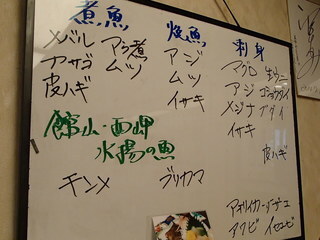 煮魚
メバル アラ煮
アサゴ ムツ
皮ハギ
焼魚
アジ
ムツ
イサキ
刺身
マグロ 生ウニ
アジ
メジナ ブダイ
イサキ
皮ハギ
館山・西岬
水揚の魚
キンメ
アオリイカ
アワビ イセエビ